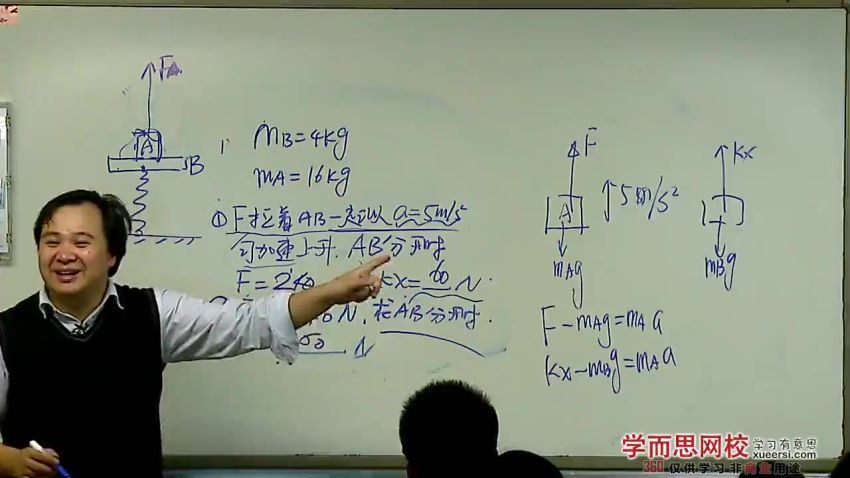 F
A
B
mB=4kg
mA=16kg
① F拉着AB一起以a=5m/s²
匀加速上升. AB分开时
F=240 kx=60 N.
N. 在AB分开时.
50 N
F
A
mAg
↑5m/s²
kx
mBg
F-mAg=mAa
kx-mBg=mAa
学而思网校 学习有意思
xueersi.com
360 仅供学习·非商业用途